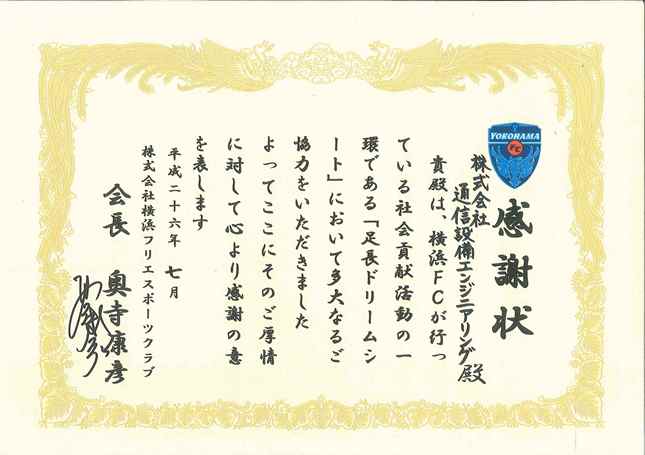 YOKOHAMA
FC
感謝状
株式会社
通信設備エンジニアリング殿
貴殿は、横浜FCが行っ
ている社会貢献活動の一
環である「足長ドリームシ
ート」において多大なるご
協力をいただきました
よってここにそのご厚情
に対して心より感謝の意
を表します
平成二十六年 七月
株式会社横浜フリエスポーツクラブ
会長 奥寺康彦